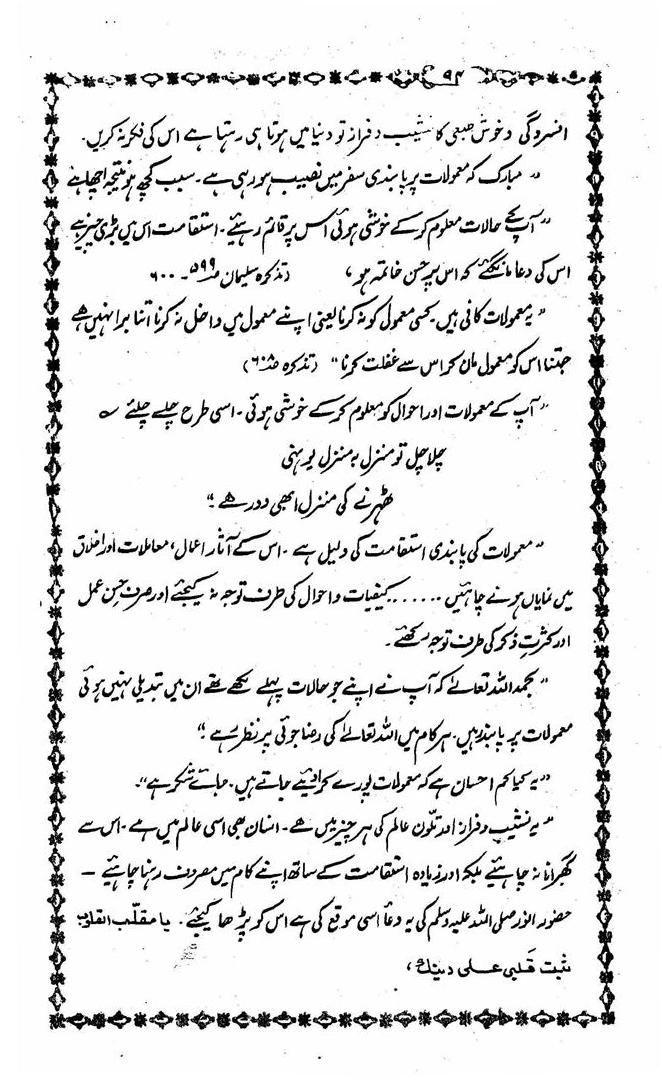 ۹۴
افسردگی و خوش طبعی کا نشیب و فراز تو دنیا میں ہوتا ہی رہتا ہے اس کی فکر نہ کریں۔
"مبارک کہ معمولات پر پابندی سفر میں نصیب ہو رہی ہے۔ سبب کچھ ہو نتیجہ اچھا ہے
"آپ کے حالات معلوم کر کے خوشی ہوئی اس پر قائم رہیئے۔ استقامت اس میں بڑی چیز ہے
اس کی دعا مانگئے کہ اس پر حسن خاتمہ ہو، (تذکرہ سلیمان ص۵۹۹۔ ۶۰۰
"یہ معمولات کافی ہیں۔ کسی معمولی کو نہ کرنا یعنی اپنے معمول میں داخل نہ کرنا اتنا برا نہیں ہے
جتنا اس کو معمول مان کر اس سے غفلت کرنا" (تذکرہ ص۶۰۸)
"آپ کے معمولات اور احوال کو معلوم کر کے خوشی ہوئی۔ اسی طرح چلے چلئے ؎
چلا چل تو منزل بہ منزل یوں ہی
ٹھہرنے کی منزل ابھی دور ہے۔"
"معمولات کی پابندی استقامت کی دلیل ہے۔ اس کے آثار اعمال، معاملات اور اخلاق
میں نمایاں ہونے چاہئیں ...... کیفیات و احوال کی طرف توجہ نہ کیجئے اور صرف حسن عمل
اور کثرت ذکر کی طرف توجہ رکھئے۔
"بحمد اللہ تعالیٰ کہ آپ نے اپنے جو حالات پہلے لکھے تھے ان میں تبدیلی نہیں ہوئی
معمولات پر پابند ہیں۔ ہر کام میں اللہ تعالیٰ کی رضا جوئی پر نظر ہے۔"
"یہ کیا کم احسان ہے کہ معمولات پورے کرا دیئے جاتے ہیں۔ جائے شکر ہے"۔
"یہ نشیب و فراز اور تلون عالم کی ہر چیز میں ہے۔ انسان بھی اسی عالم میں ہے۔ اس سے
گھبرانا نہ چاہئیے بلکہ اور زیادہ استقامت کے ساتھ اپنے کام میں مصروف رہنا چاہئیے —
حضور انور صلی اللہ علیہ وسلم کی یہ دعا اسی موقع کی ہے اس کو پڑھا کیجئے۔ یا مقلّب القلوب
ثبت قلبی علی دینک،